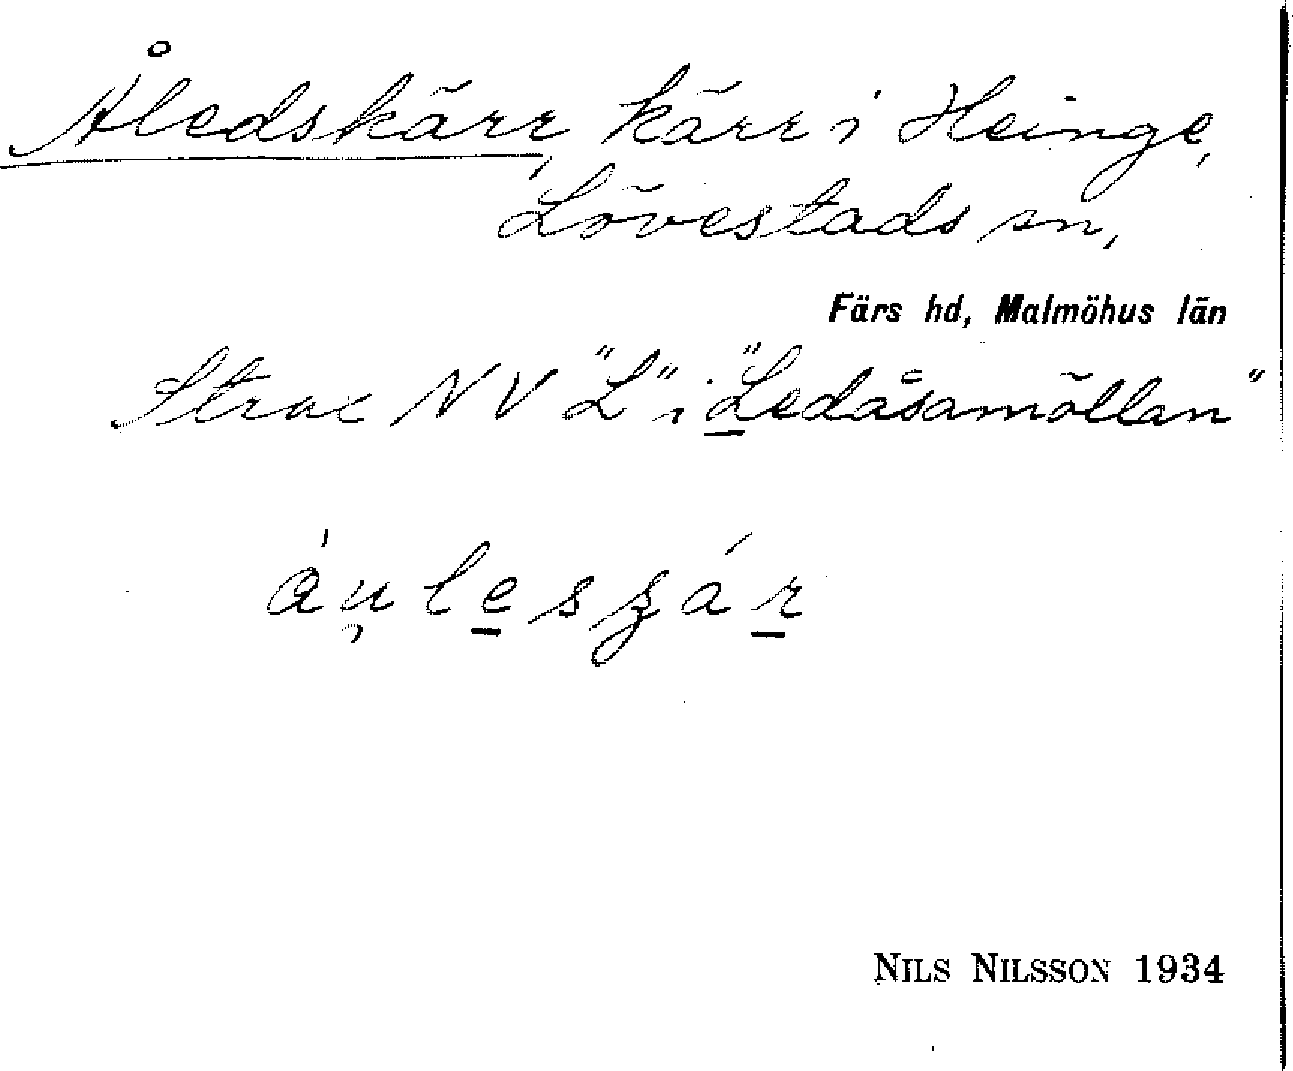 Åledskärr, kärr i Heinge,
Lövestads sn,
Färs hd, Malmöhus län
Strax NV "L" i "Ledåsamöllan"
NILS NILSSON 1934